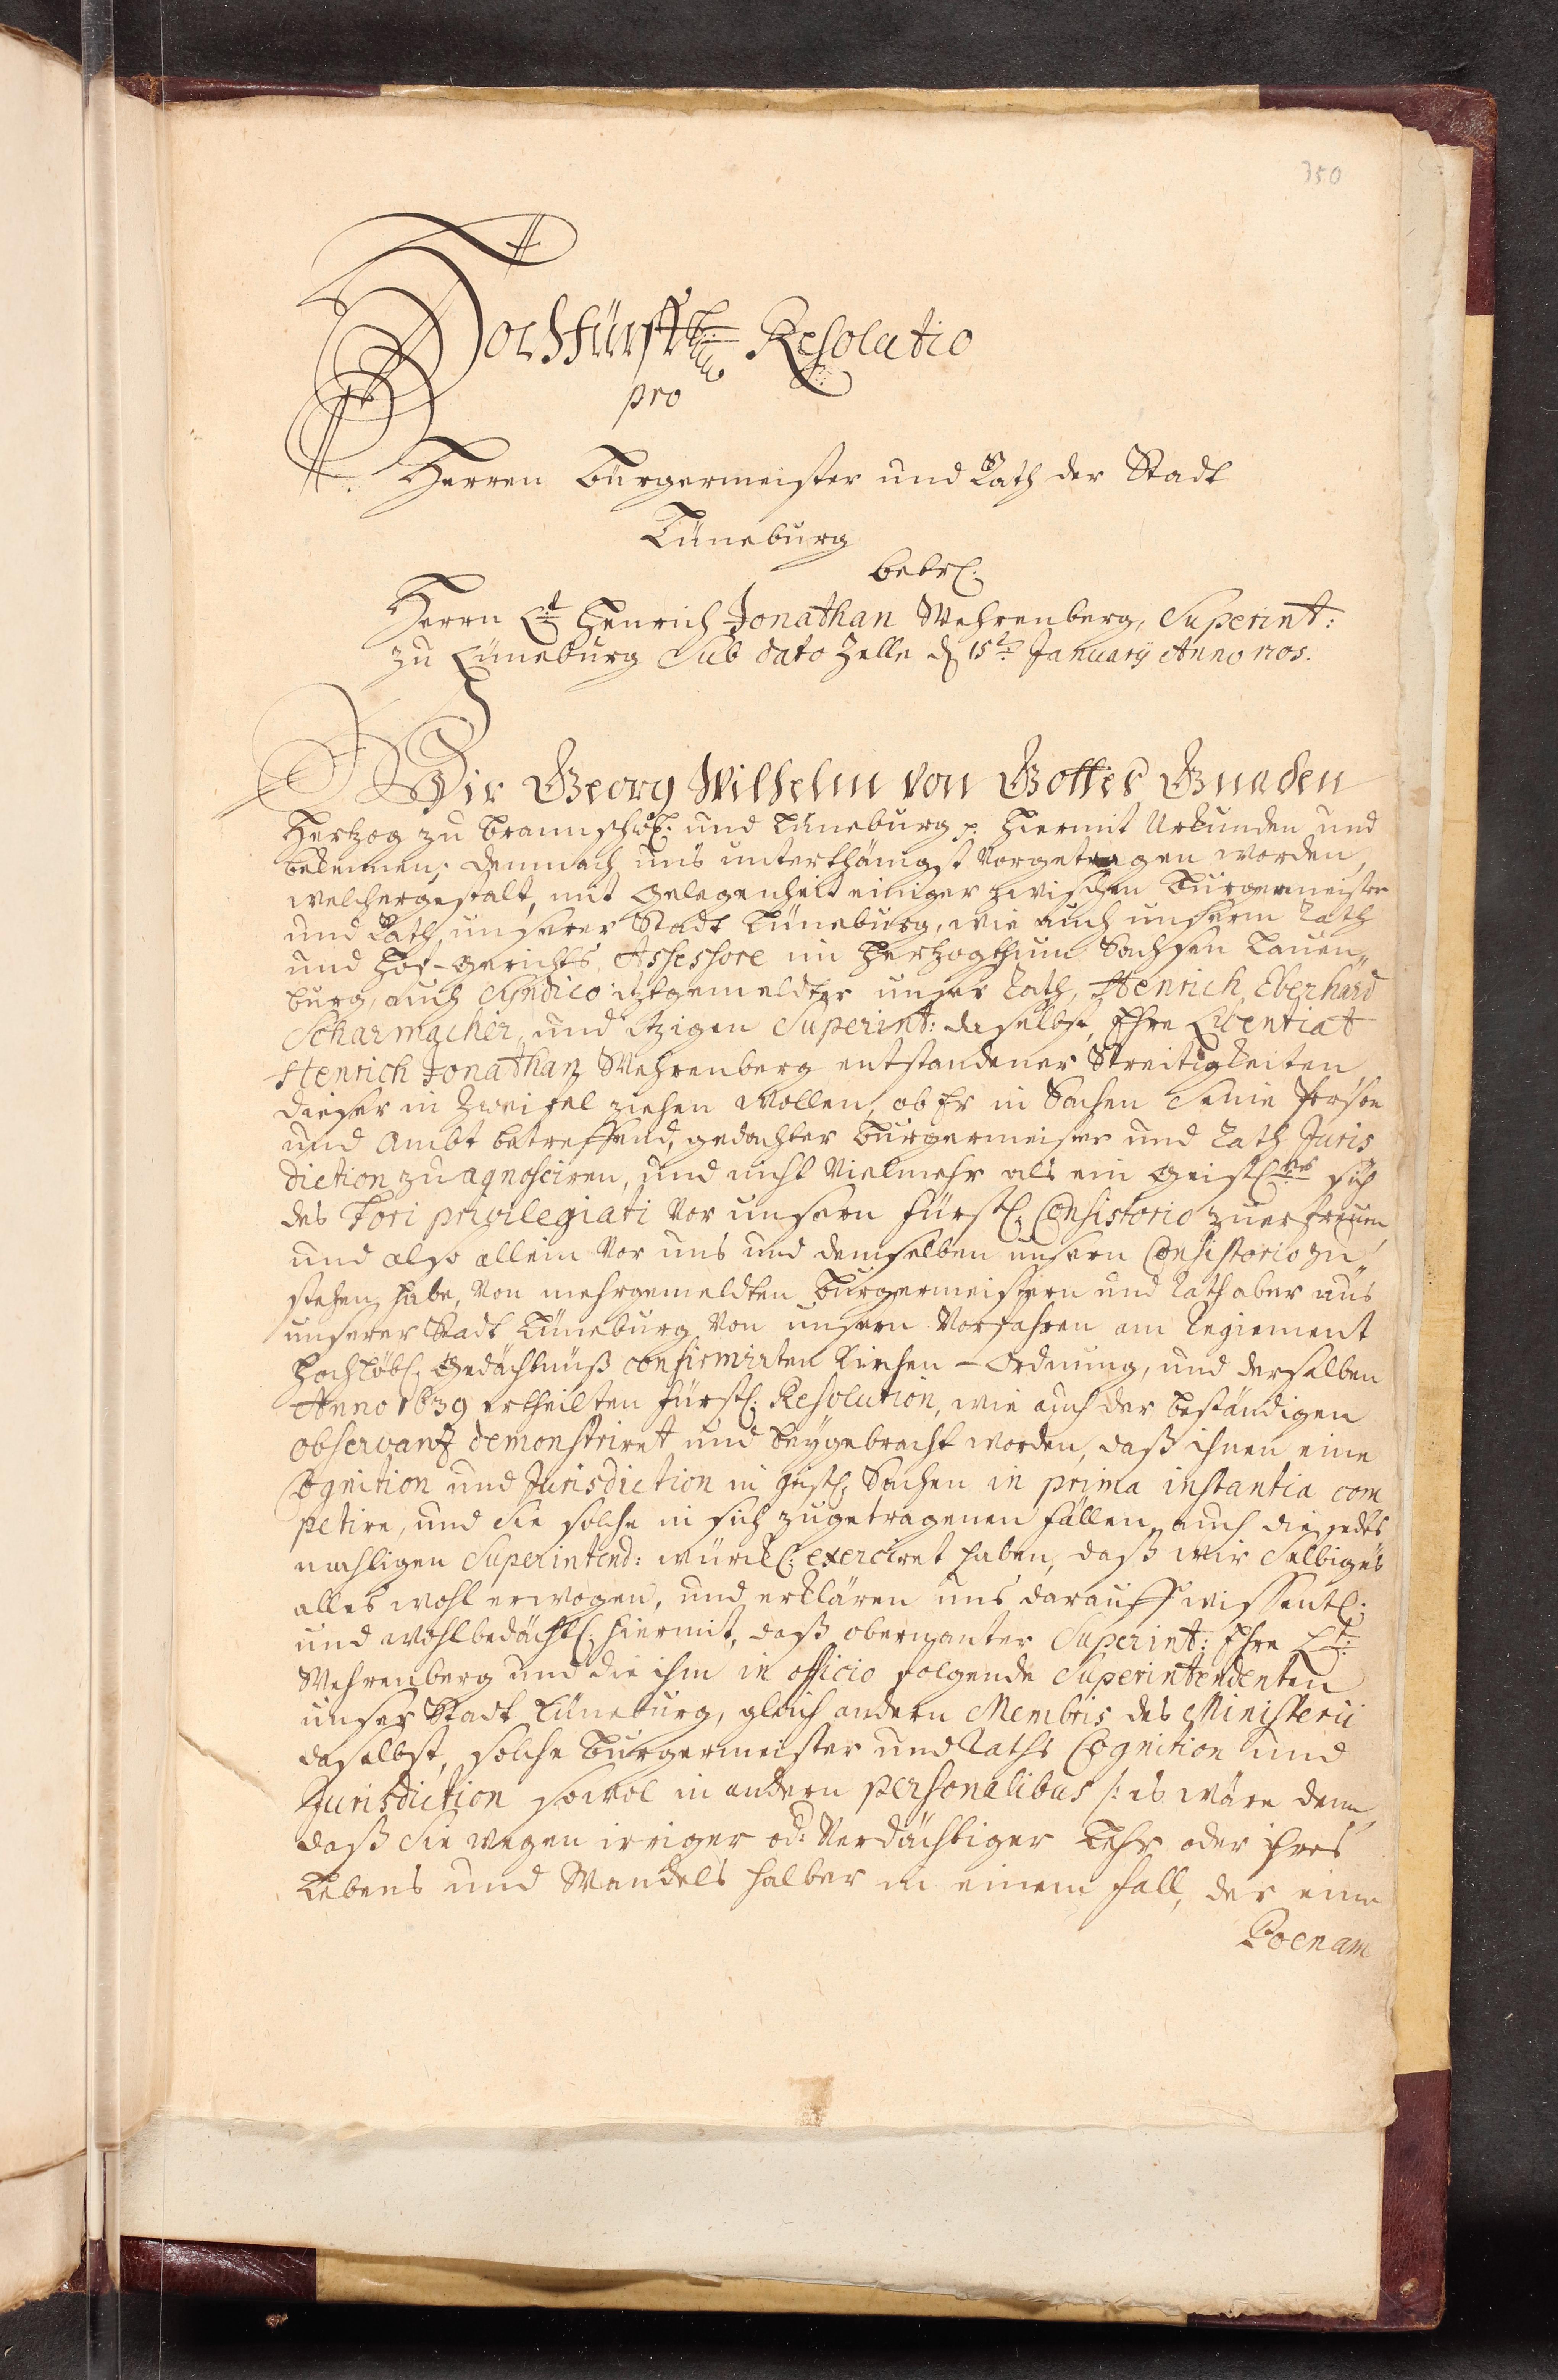 350
Hochfürstl: Resolutio
pro
Herren Bürgermeister und Rath der Stadt
Lüneburg
betr:
Herrn Lt: Henrich Jonathan Wehrenberg, Superint:
zu Lüneburg Sub dato Zelle d 15t January Anno 1705.
Wir Georg Wilhelm von Gottes Gnaden
Hertzog zu Braunschw: und Lüneburg p. hiermit Urkunden und
bekennen; demnach uns unterthänigst vorgetragen worden,
welchergestalt, mit Gelegenheit einiger zwischen Bürgermeister
und Rath unserer Stadt Lüneburg, wie auch unserm Rath
und Hof-Gerichts Assessore im Herzogthum Sachsen Lauen„
burg, auch Syndico itztgemeldter unser Rath, Henrich Eberhard
Scharmacher, und itzigen Superint: daselbst, Ehre Licentiat
Henrich Jonathan Wehrenberg entstandener Streitigkeiten
dieser in Zweifel ziehen wollen, ob Er in Sachen seine Person
und Ambt betreffend, gedachter Bürgermeister und Rath Juris
diction zu agnosciren, und nicht vielmehr als ein Geistl: sich
des Fori privilegiati vor unsern Fürstl: Consistorio zuerfreuen,
und also allein vor uns und demselben unsern Consistorio zu„
stehen habe, von mehrgemeldten Bürgermeistern und Rath aber aus
unserer Stadt Lüneburg von unsern Vorfahren am Regiement
Hochlöbl: Gedächtnüß confirmirten Kirchen-Ordnung, und derselben
Anno 1639 ertheilten Fürstl: Resolution, wie auch der beständigen
observantz demonstriret und beygebracht worden, daß ihnen eine
Cognition und Jurisdiction in geistl: Sachen in prima instantia com
petire, und Sie solche in sich zugetragenen Fällen, auch die jedes
mahligen Superintend: würckl: exerciret haben, daß wir selbiges
alles wohl erwogen, und erklären uns darauff wissentl:
und wohlbedächtl: hiermit, daß obernanter Superint: Ehre Lt:
Wehrenberg und die ihm in officio folgende Superintendenten
unser Stadt Lüneburg, gleich andern Membris des Ministerii
daselbst, solche Bürgermeister und Raths Cognition und
Jurisdiction sowol in andern personalibus /: es wäre denn
daß Sie wegen irriger od: verdächtiger Lehr oder ihres
Lebens und Wandels halber in einem Fall, der eine
Poenam